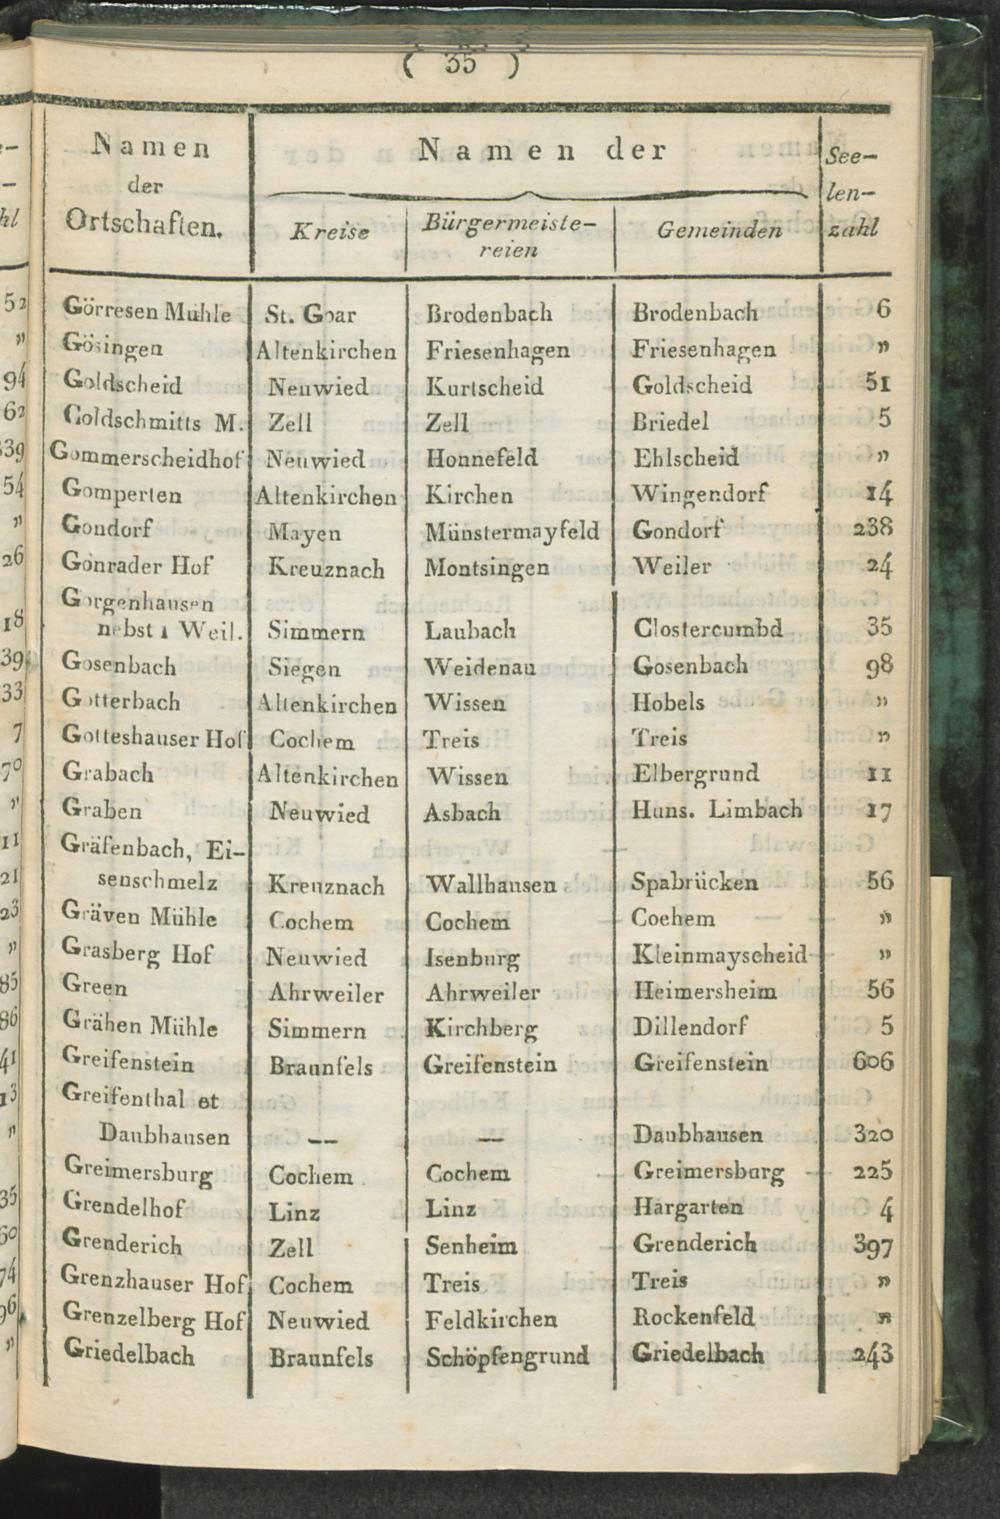 ( 35 )
Namen der Ortschaften. Namen der Seelenzahl
Kreise Bürgermeistereien Gemeinden
Görresen Mühle St. Goar Brodenbach Brodenbach 6
Gösingen Altenkirchen Friesenhagen Friesenhagen "
Goldscheid Neuwied Kurtscheid Goldscheid 51
Goldschmitts M. Zell Zell Briedel 5
Gommerscheidhof Neuwied Honnefeld Ehlscheid "
Gomperten Altenkirchen Kirchen Wingendorf 14
Gondorf Mayen Münstermayfeld Gondorf 238
Gonrader Hof Kreuznach Montsingen Weiler 24
Gorgenhausen
nebst 1 Weil. Simmern Laubach Clostercumbd 35
Gosenbach Siegen Weidenau Gosenbach 98
Gotterbach Altenkirchen Wissen Hobels "
Gotteshauser Hof Cochem Treis Treis "
Grabach Altenkirchen Wissen Elbergrund 11
Graben Neuwied Asbach Huns. Limbach 17
Gräfenbach, Ei-
senschmelz Kreuznach Wallhausen Spabrücken 56
Gräven Mühle Cochem Cochem Coehem "
Grasberg Hof Neuwied Isenburg Kleinmayscheid "
Green Ahrweiler Ahrweiler Heimersheim 56
Grähen Mühle Simmern Kirchberg Dillendorf 5
Greifenstein Braunfels Greifenstein Greifenstein 606
Greifenthal et
Daubhausen — — Daubhausen 320
Greimersburg Cochem Cochem Greimersburg 225
Grendelhof Linz Linz Hargarten 4
Grenderich Zell Senheim Grenderich 397
Grenzhauser Hof Cochem Treis Treis "
Grenzelberg Hof Neuwied Feldkirchen Rockenfeld "
Griedelbach Braunfels Schöpfengrund Griedelbach 243